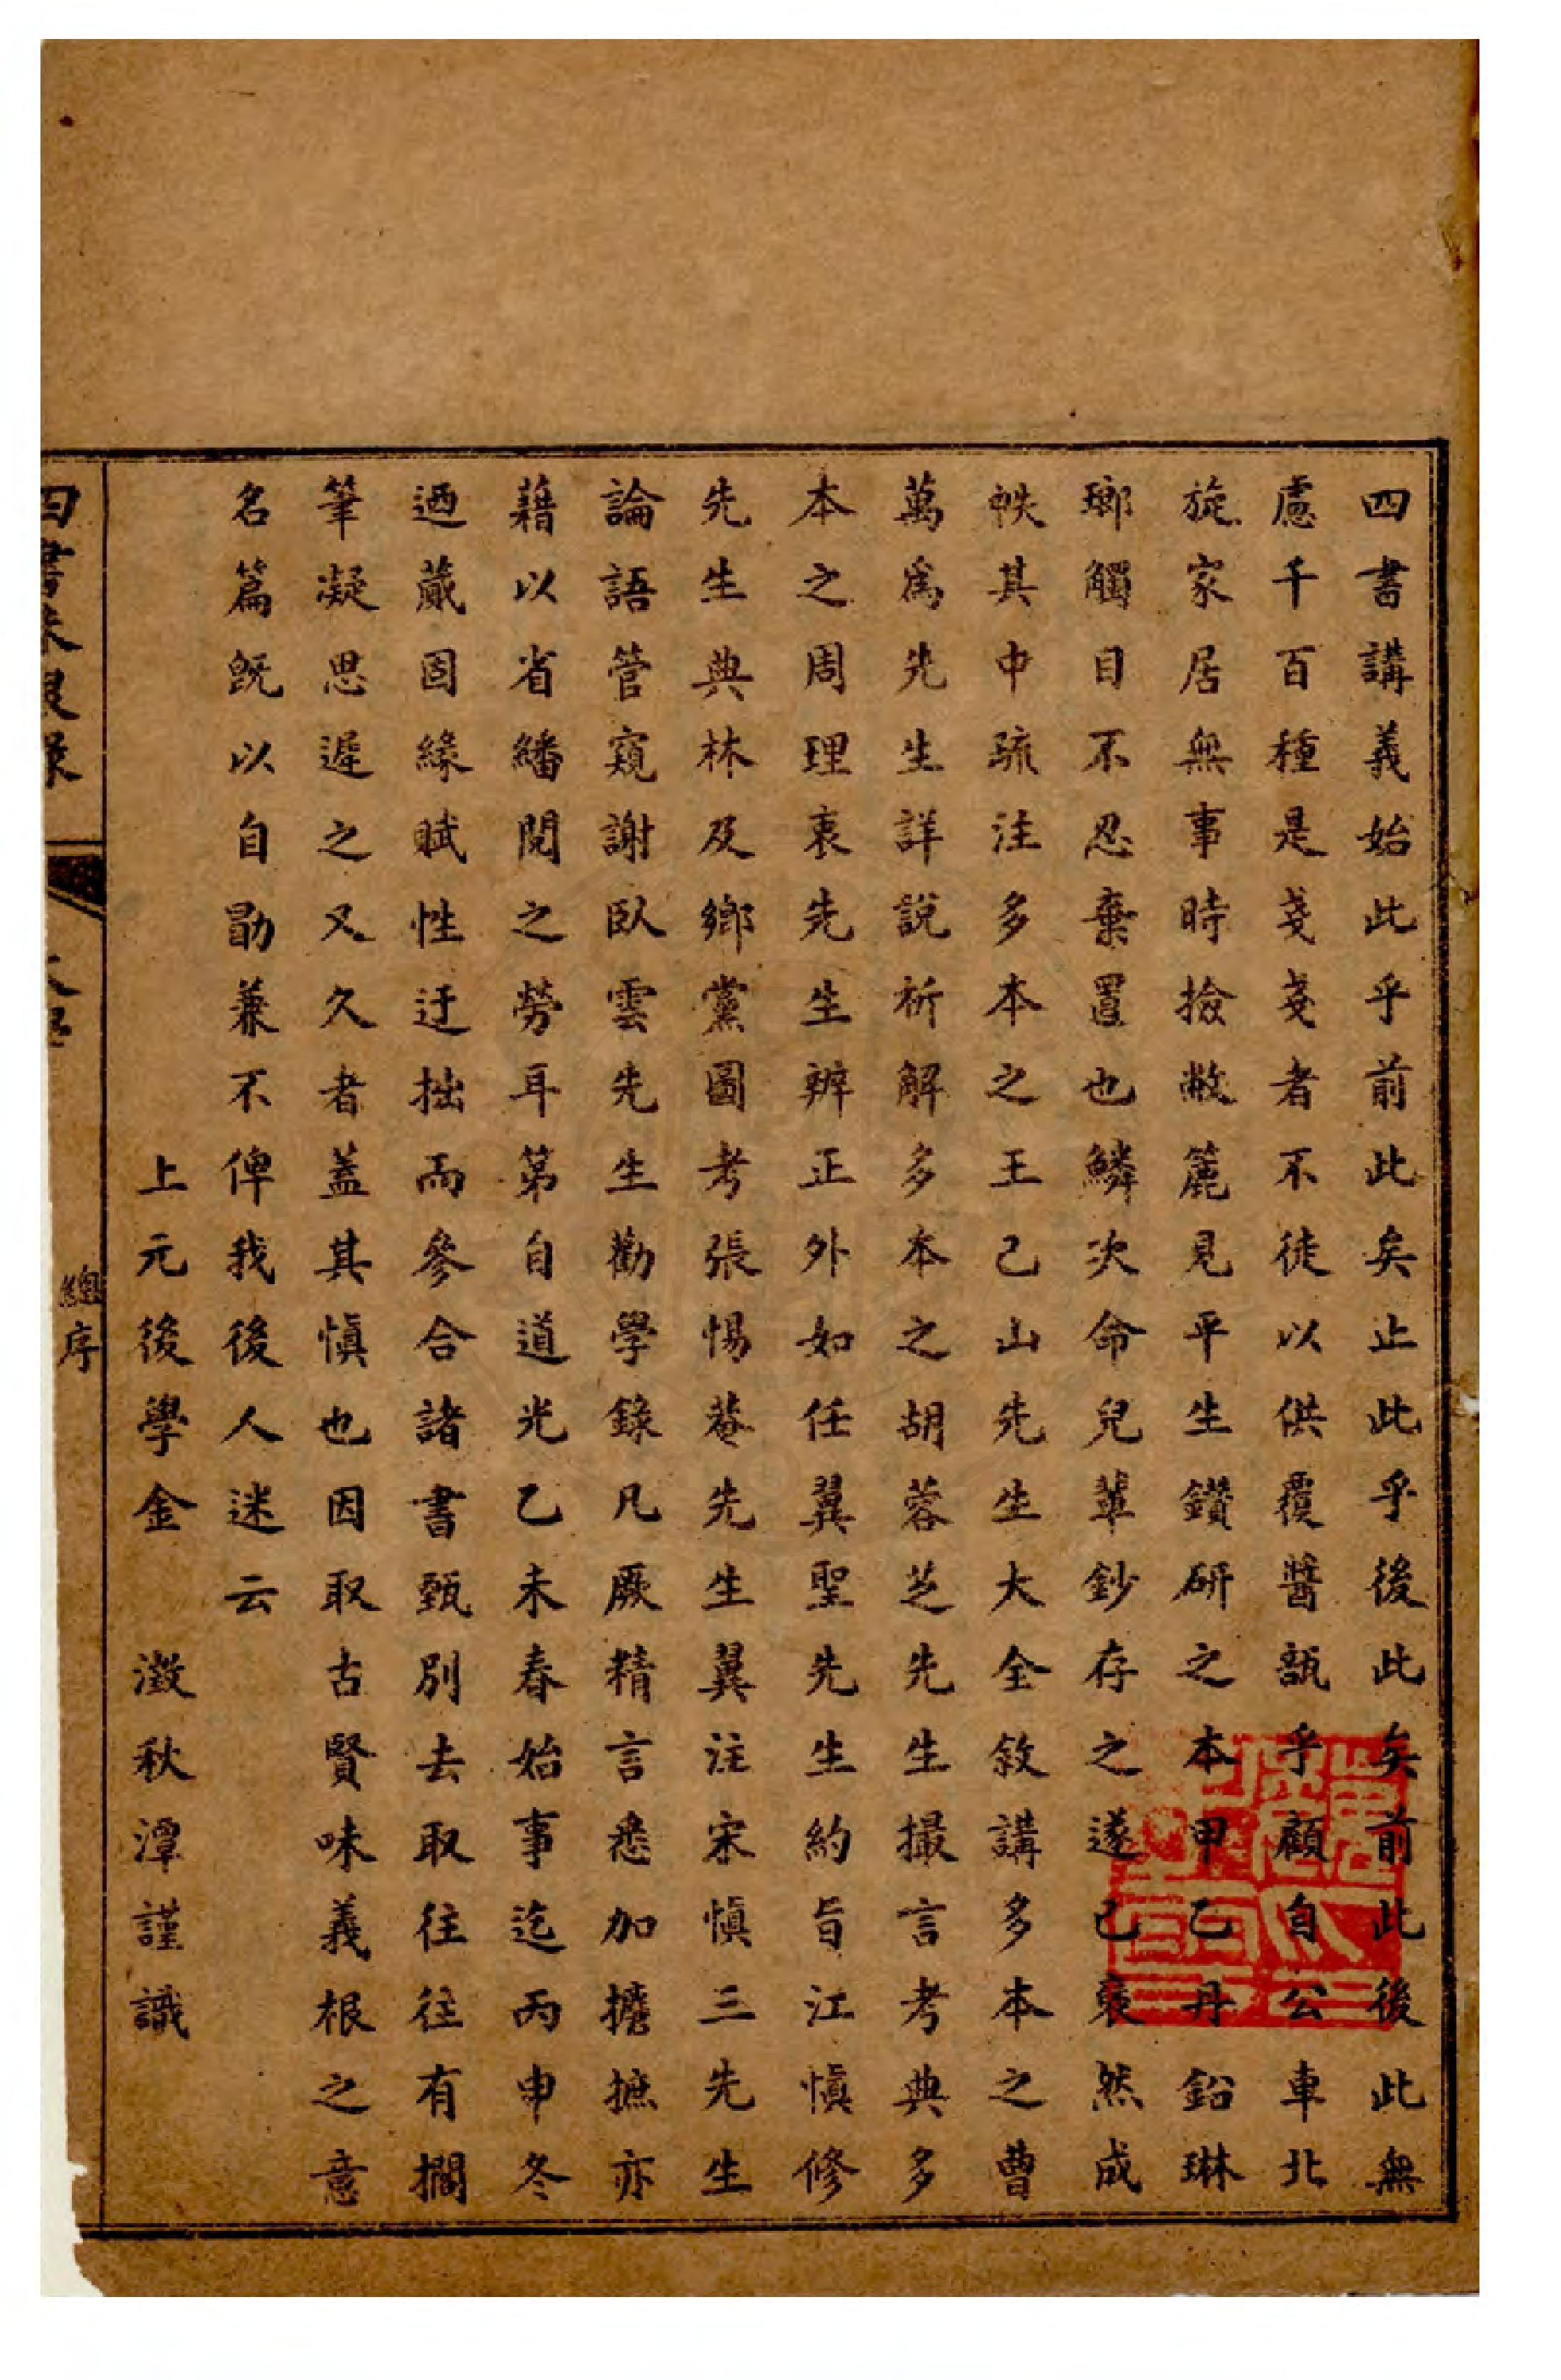 四書講義始此乎前此矣止此乎後此矣前此後此無
慮千百種是戔戔者不徒以供覆醬瓿乎顧自公車北
旋家居無事時撿敝簏見平生鑽研之本甲乙丹鉛琳
瑯觸目不忍棄置也鱗次命兒輩鈔存之遂已裒然成
帙其中疏注多本之王己山先生大全敘講多本之曹
萬為先生詳說析解多本之胡蓉芝先生撮言考典多
本之周理衷先生辨正外如任翼聖先生約旨江慎修
先生典林及鄉黨圖考張惕菴先生翼注宋慎三先生
論語管窺謝臥雲先生勸學錄凡厥精言悉加擔摭亦
藉以省繙閱之勞耳第自道光乙未春始事迄丙申冬
迺蕆因緣賦性迂拙而參合諸書甄別去取往往有擱
筆凝思遲之又久者蓋其慎也因取古賢味義根之意
名篇既以自勖兼不俾我後人迷云
上元後學金 澂秋潭謹識
四書味根錄
大學
總序